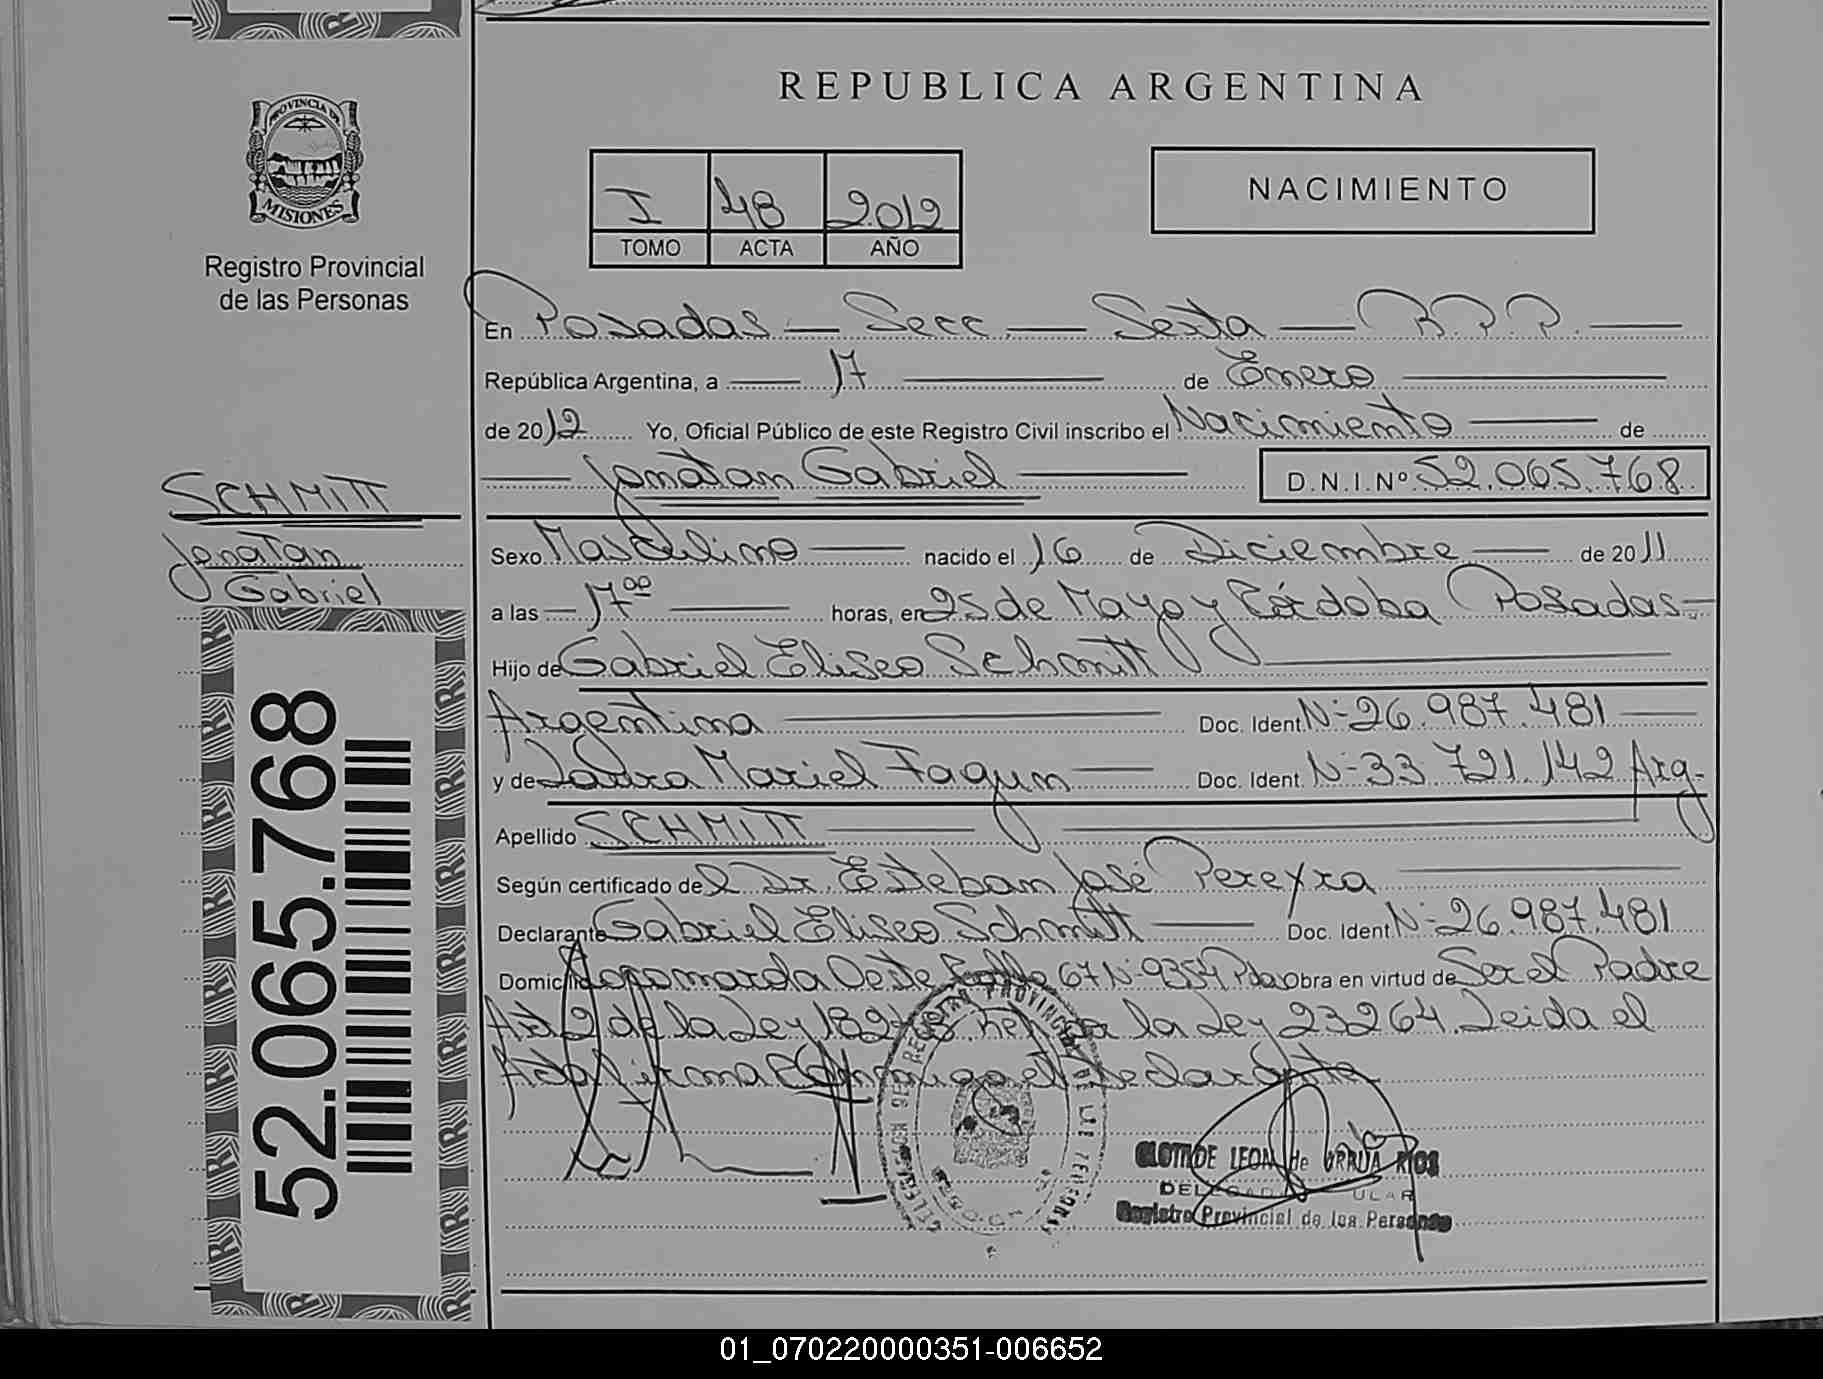 REPUBLICA ARGENTINA
PROVINCIA DE
MISIONES
Registro Provincial
de las Personas
I 48 2012
TOMO ACTA AÑO
NACIMIENTO
En Posadas — Secc. — Sexta — R.P.P. —
República Argentina, a — 17 — de Enero —
de 2012 Yo, Oficial Público de este Registro Civil inscribo el Nacimiento — de
— Jonatan Gabriel — D.N.I.Nº 52.065.768
SCHMITT
Jonatan
Gabriel
Sexo Masculino — nacido el 16 de Diciembre — de 2011
a las — 17⁰⁰ — horas, en 25 de Mayo y Córdoba Posadas —
Hijo de Gabriel Eliseo Schmitt —
Argentina — Doc. Ident. Nº 26.987.481 —
y de Laura Mariel Fagun — Doc. Ident. Nº 33.721.142 Arg-
Apellido SCHMITT —
Según certificado del Dr. Esteban José Pereyra —
Declarante Gabriel Eliseo Schmitt — Doc. Ident. Nº 26.987.481
Domicilio Oeste 67 Nº 9354 Pdas Obra en virtud de Ser el Padre
Art 2 de la Ley de la Ley 23264. Leida el
Acta firma el Declarante
52.065.768
CLOTILDE LEON de URRUA RIOS
DELEGADA TITULAR
Registro Provincial de las Personas
01_070220000351-006652